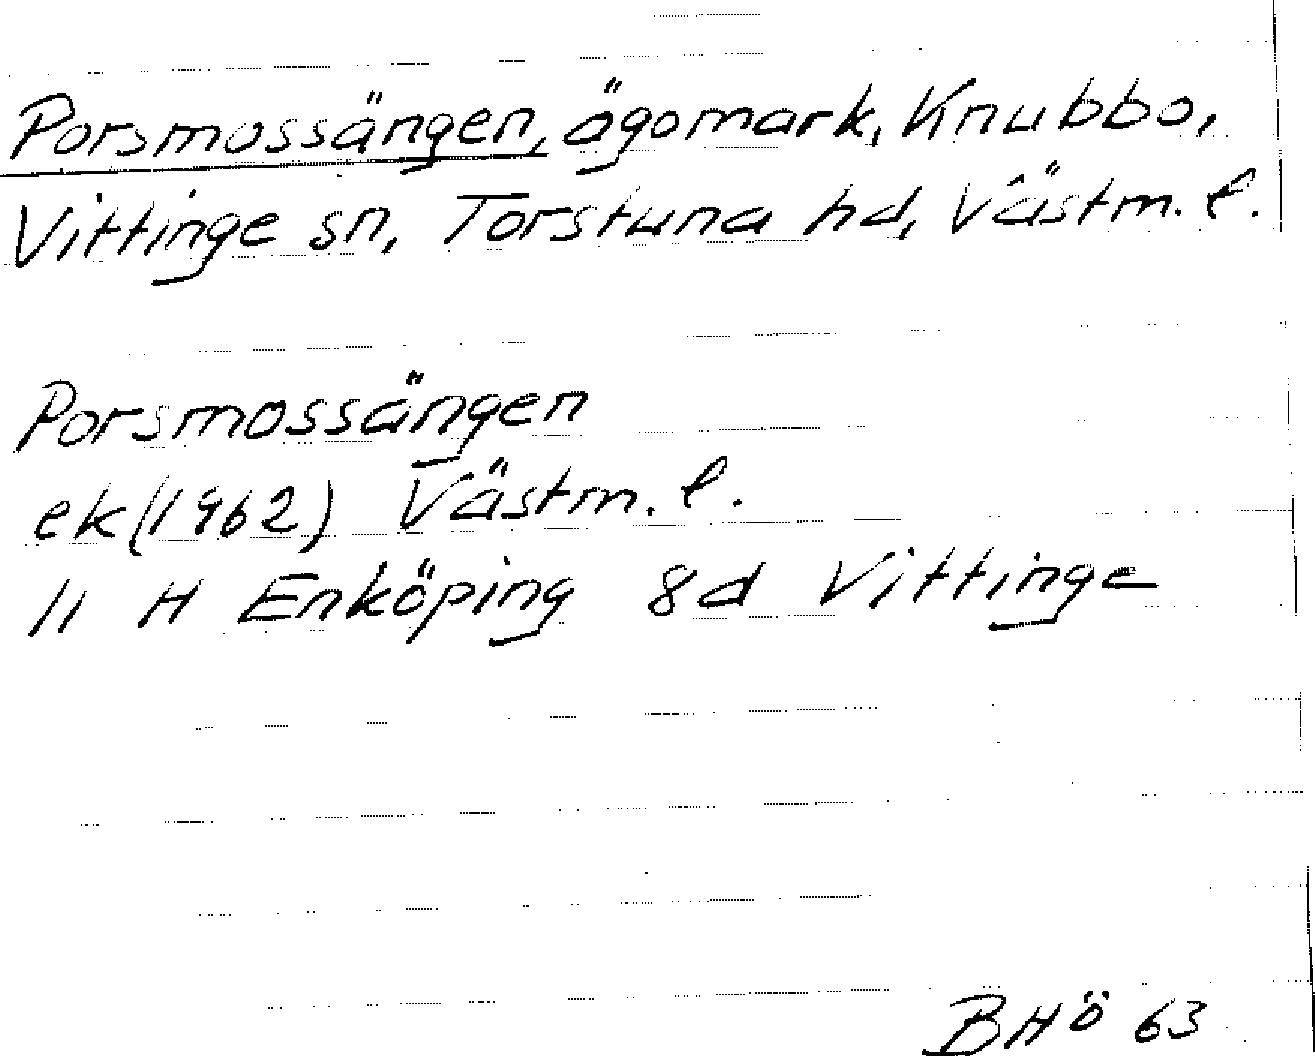 Porsmossängen, ägomark, Knubbo,
Vittinge sn, Torstuna hd, Västm. l.
Porsmossängen
ek (1962) Västm. l.
11 H Enköping 8d Vittinge
BHÖ 63